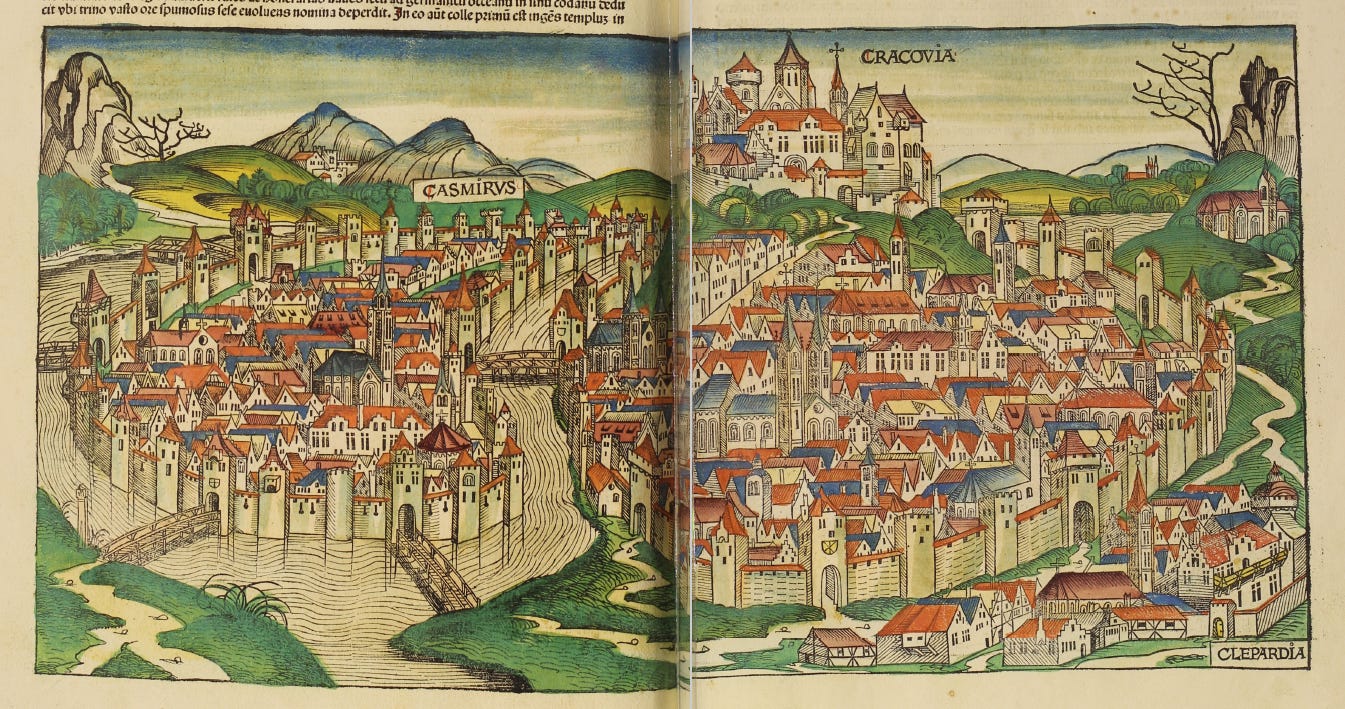 ad germanicū occeanū in ſinū codanū dedu
cit vbi trino vaſto ore ſpumoſus ſeſe euoluens nomina deperdit. In eo aūt colle primū eſt ingēs templuꝫ in
CRACOVIA
CASMIRVS
CLEPARDIA